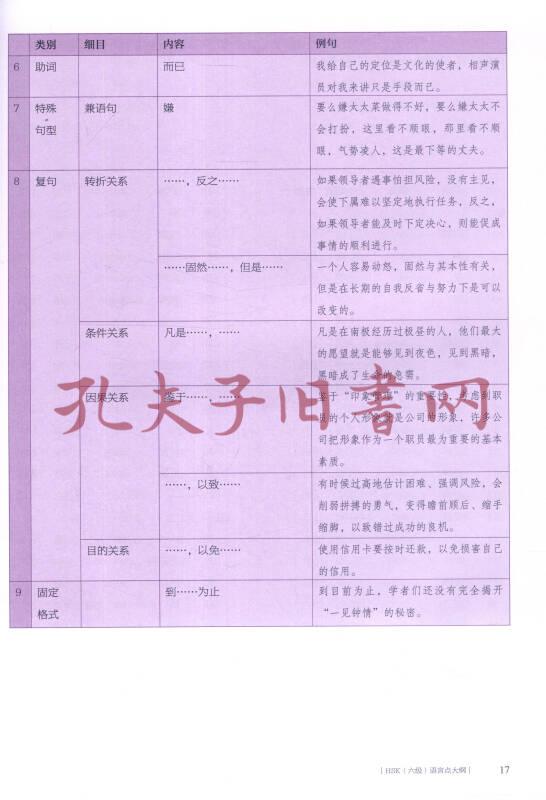 类别 细目 内容 例句
6 助词 而已 我给自己的定位是文化的使者，相声演
员对我来讲只是手段而已。
7 特殊 兼语句 嫌 要么嫌太太菜做得不好，要么嫌太太不
句型 会打扮，这里看不顺眼，那里看不顺
眼，气势凌人，这是最下等的丈夫。
8 复句 转折关系 ……，反之…… 如果领导者遇事怕担风险，没有主见，
会使下属难以坚定地执行任务，反之，
如果领导者能及时下定决心，则能促成
事情的顺利进行。
……固然……，但是…… 一个人容易动怒，固然与其本性有关，
但是在长期的自我反省与努力下是可以
改变的。
条件关系 凡是……，…… 凡是在南极经历过极昼的人，他们最大
的愿望就是能够见到夜色，见到黑暗，
黑暗成了生命的急需。
因果关系 鉴于……，…… 鉴于“印象管理”的重要性，考虑到职
员的个人形象就是公司的形象，许多公
司把形象作为一个职员最为重要的基本
素质。
……，以致…… 有时候过高地估计困难、强调风险，会
削弱拼搏的勇气，变得瞻前顾后、缩手
缩脚，以致错过成功的良机。
目的关系 ……，以免…… 使用信用卡要按时还款，以免损害自己
的信用。
9 固定 到……为止 到目前为止，学者们还没有完全揭开
格式 “一见钟情”的秘密。
孔夫子旧书网
| HSK（六级）语言点大纲 | 17